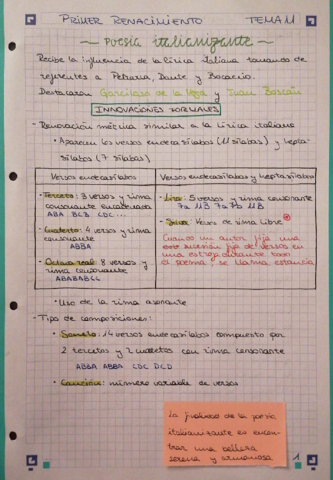 PRIMER RENACIMIENTO TEMA 11
~ poesía italianizante ~
Recibe la influencia de la lírica italiana tomando de
referentes a Petrarca, Dante y Bocaccio.
Destacaron Garcilaso de la Vega y Juan Boscán
INNOVACIONES FORMALES
- Renovación métrica similar a la lírica italiana
• Aparecen los versos endecasílabos (11 sílabas) y hepta-
sílabos (7 sílabas)
Versos endecasílabos
• Terceto: 3 versos y rima
consonante encadenada
ABA BCB CDC ...
• Cuarteto: 4 versos y rima
consonante
ABBA
• Octava real: 8 versos y
rima consonante
ABABABCC
Versos endecasílabos y heptasílabos
• Lira: 5 versos y rima consonante
7a 11B 7a 7b 11B
• Silva: Versos de rima libre
Cuando un autor fija una
de versos en
una estrofa durante todo
el poema, se llama estancia
• Uso de la rima asonante
- Tipo de composiciones:
• Soneto: 14 versos endecasílabos compuesto por
2 tercetos y 2 cuartetos con rima consonante
ABBA ABBA CDC DCD
• Canción: número variable de versos
La finalidad de la poesía
italianizante es encon-
trar una belleza
serena y armoniosa
1